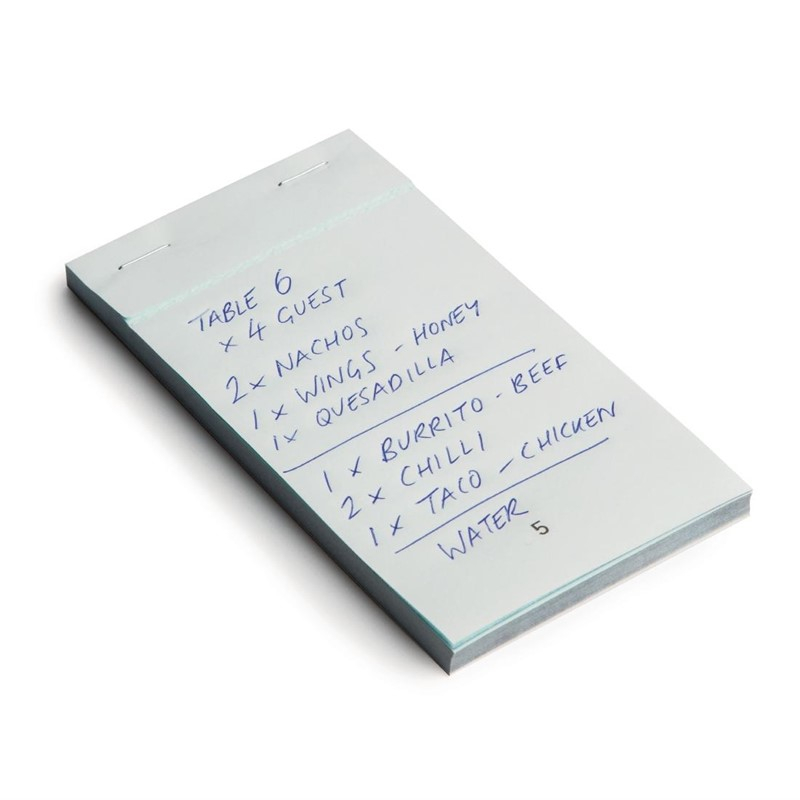 TABLE 6
x 4 GUEST
2x NACHOS
1 x WINGS - HONEY
1x QUESADILLA
1 x BURRITO - BEEF
2 x CHILLI
1 x TACO - CHICKEN
WATER
5